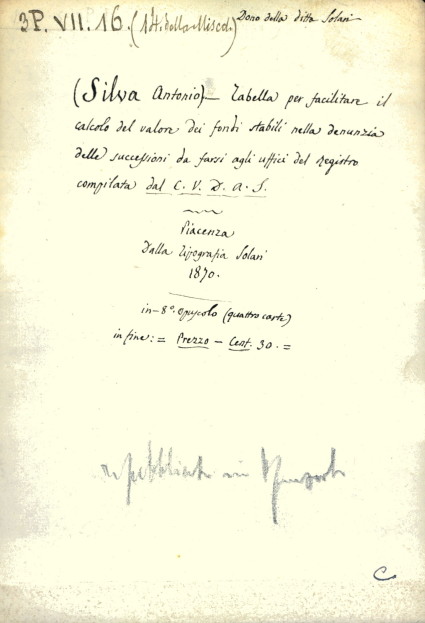 3P. VII. 16. (14. della Miscel.) Dono della ditta Solari
(Silva Antonio) — Tabella per facilitare il
calcolo del valore dei fondi stabili nella denunzia
delle successioni da farsi agli uffici del Registro
compilata dal C. V. D. A. S.
Piacenza
Dalla Tipografia Solari
1870.
in-8º. opuscolo (quattro carte)
in fine: = Prezzo — Cent. 30. =
in
C